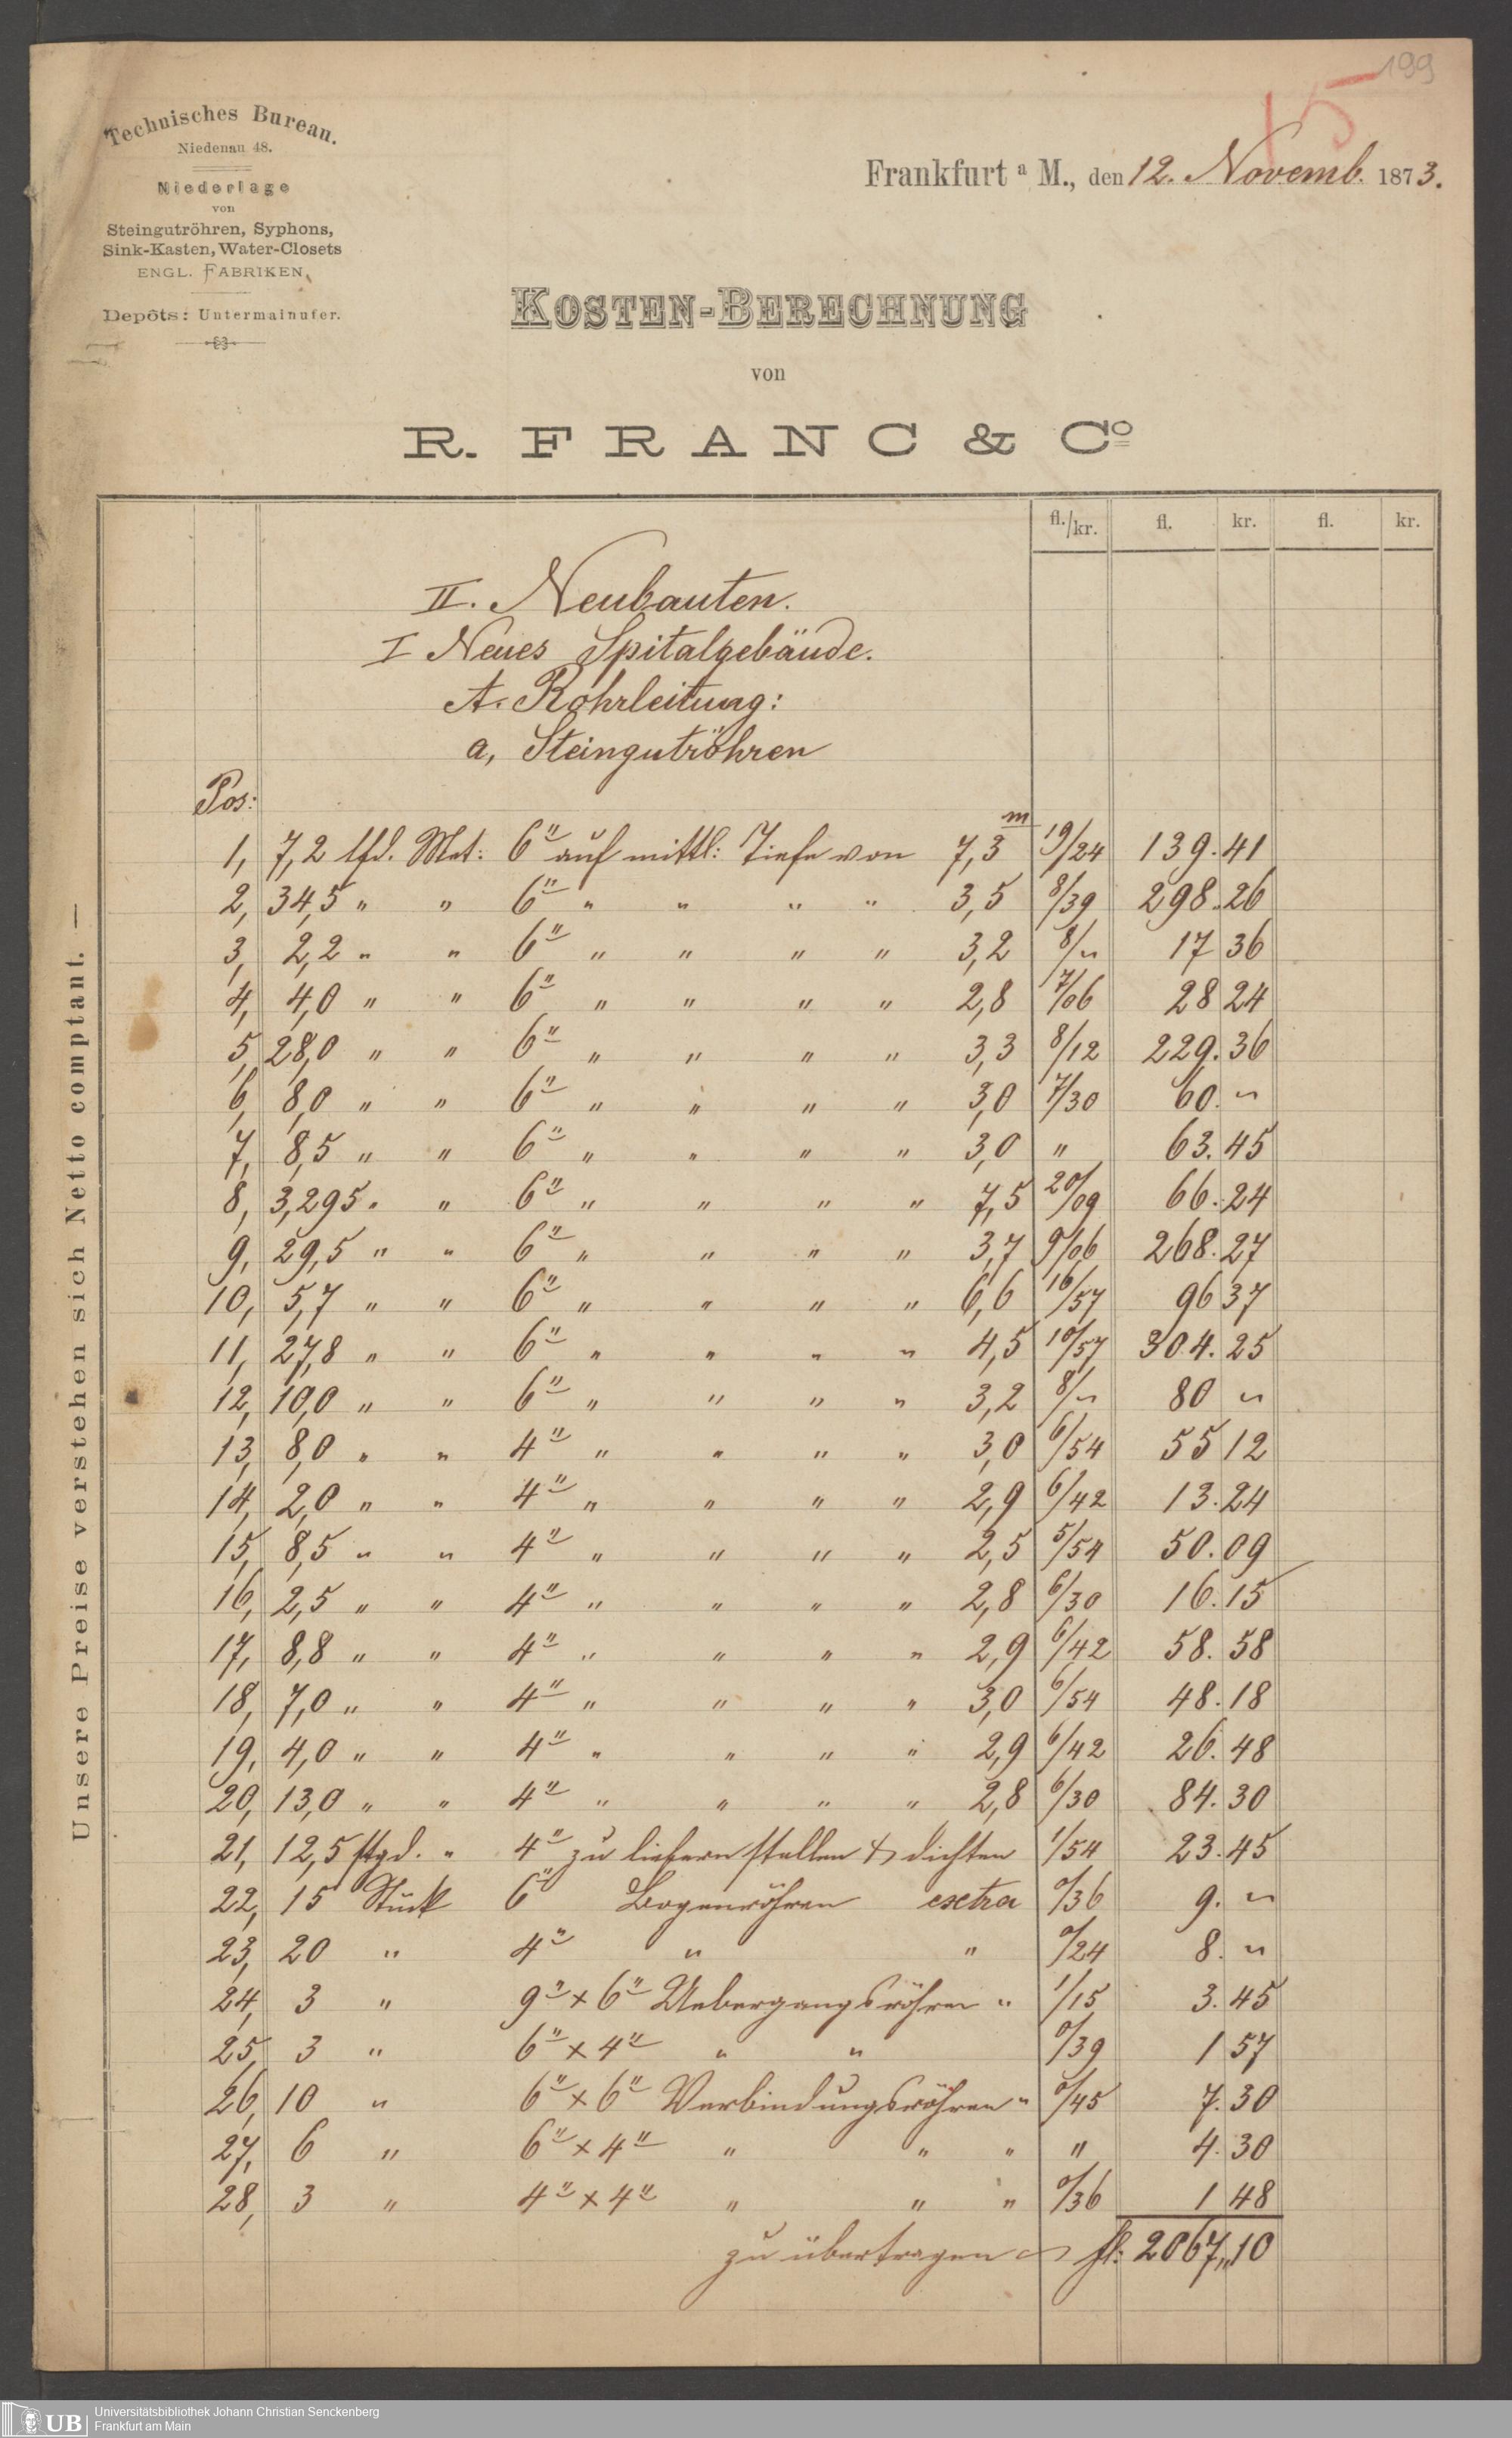 199
15
Technisches Bureau.
Niedenau 48.
Niederlage
von
Steingutröhren, Syphons,
Sink-Kasten, Water-Closets
ENGL. FABRIKEN.
Depôts: Untermainufer.
Frankfurt a M., den 12. Novemb. 1873.
KOSTEN-BERECHNUNG
von
R. FRANC & Co
Unsere Preise verstehen sich Netto comptant. —
fl./kr. fl. kr. fl. kr.
II. Neubauten.
I Neues Spitalgebäude.
A. Rohrleitung:
a, Steingutröhren
Pos:
1, 7,2 lfd. Met: 6" auf mittl: Tiefe von 7,3 m 19/24 139. 41
2, 34,5 " " 6" " " " " 3,5 8/39 298. 26
3, 2,2 " " 6" " " " " 3,2 8/" 17 36
4, 4,0 " " 6" " " " " 2,8 7/06 28 24
5, 28,0 " " 6" " " " " 3,3 8/12 229. 36
6, 8,0 " " 6" " " " " 3,0 7/30 60. "
7, 8,5 " " 6" " " " " 3,0 " 63. 45
8, 3,295 " " 6" " " " " 7,5 20/09 66. 24
9, 29,5 " " 6" " " " " 3,7 9/06 268. 27
10, 5,7 " " 6" " " " " 6,6 16/57 96 37
11, 27,8 " " 6" " " " " 4,5 10/57 304. 25
12, 10,0 " " 6" " " " " 3,2 8/" 80 "
13, 8,0 " " 4" " " " " 3,0 6/54 55 12
14, 2,0 " " 4" " " " " 2,9 6/42 13. 24
15, 8,5 " " 4" " " " " 2,5 5/54 50. 09
16, 2,5 " " 4" " " " " 2,8 6/30 16. 15
17, 8,8 " " 4" " " " " 2,9 6/42 58. 58
18, 7,0 " " 4" " " " " 3,0 6/54 48. 18
19, 4,0 " " 4" " " " " 2,9 6/42 26. 48
20, 13,0 " " 4" " " " " 2,8 6/30 84. 30
21, 12,5 stgd. " 4" zu liefern stellen & dichten 1/54 23. 45
22, 15 Stück 6" Bogenröhren extra 0/36 9. "
23, 20 " 4" " " 0/24 8. "
24, 3 " 9" x 6" Uebergangsröhren " 1/15 3. 45
25, 3 " 6" x 4" " " 0/39 1 57
26, 10 " 6" x 6" Verbindungsröhren " 0/45 7. 30
27, 6 " 6" x 4" " " " " 4. 30
28, 3 " 4" x 4" " " " 0/36 1 48
zu übertragen fl: 2067,, 10
UB
Universitätsbibliothek Johann Christian Senckenberg
Frankfurt am Main